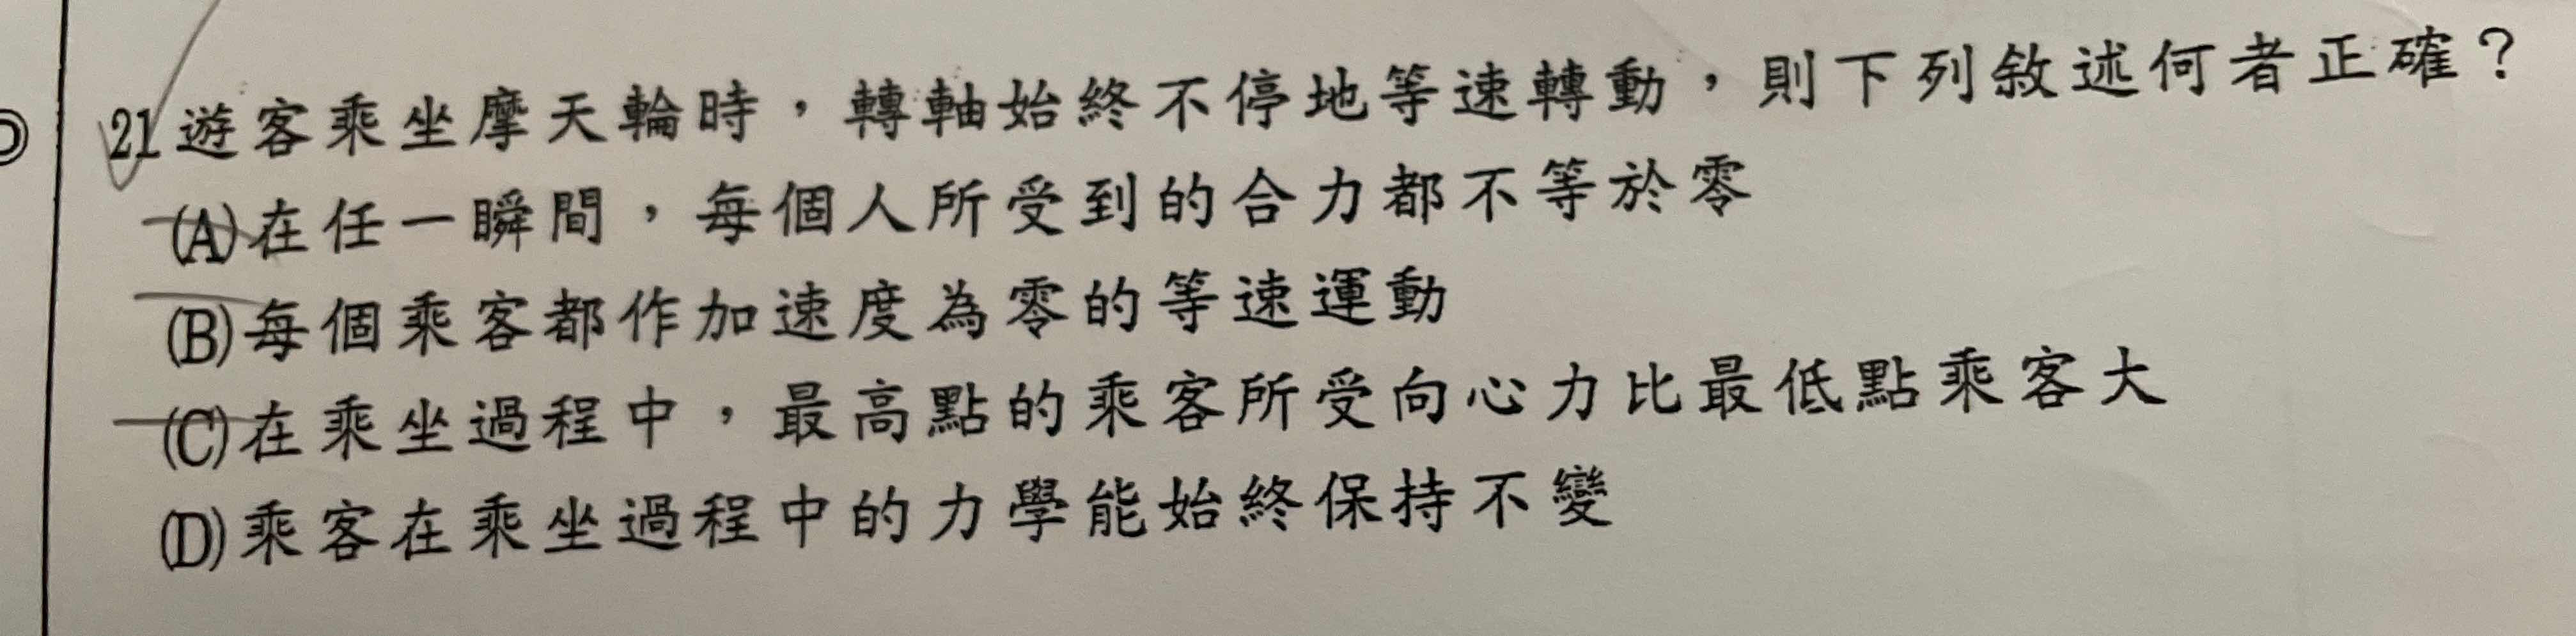 21 遊客乘坐摩天輪時，轉軸始終不停地等速轉動，則下列敘述何者正確？
(A)在任一瞬間，每個人所受到的合力都不等於零
(B)每個乘客都作加速度為零的等速運動
(C)在乘坐過程中，最高點的乘客所受向心力比最低點乘客大
(D)乘客在乘坐過程中的力學能始終保持不變